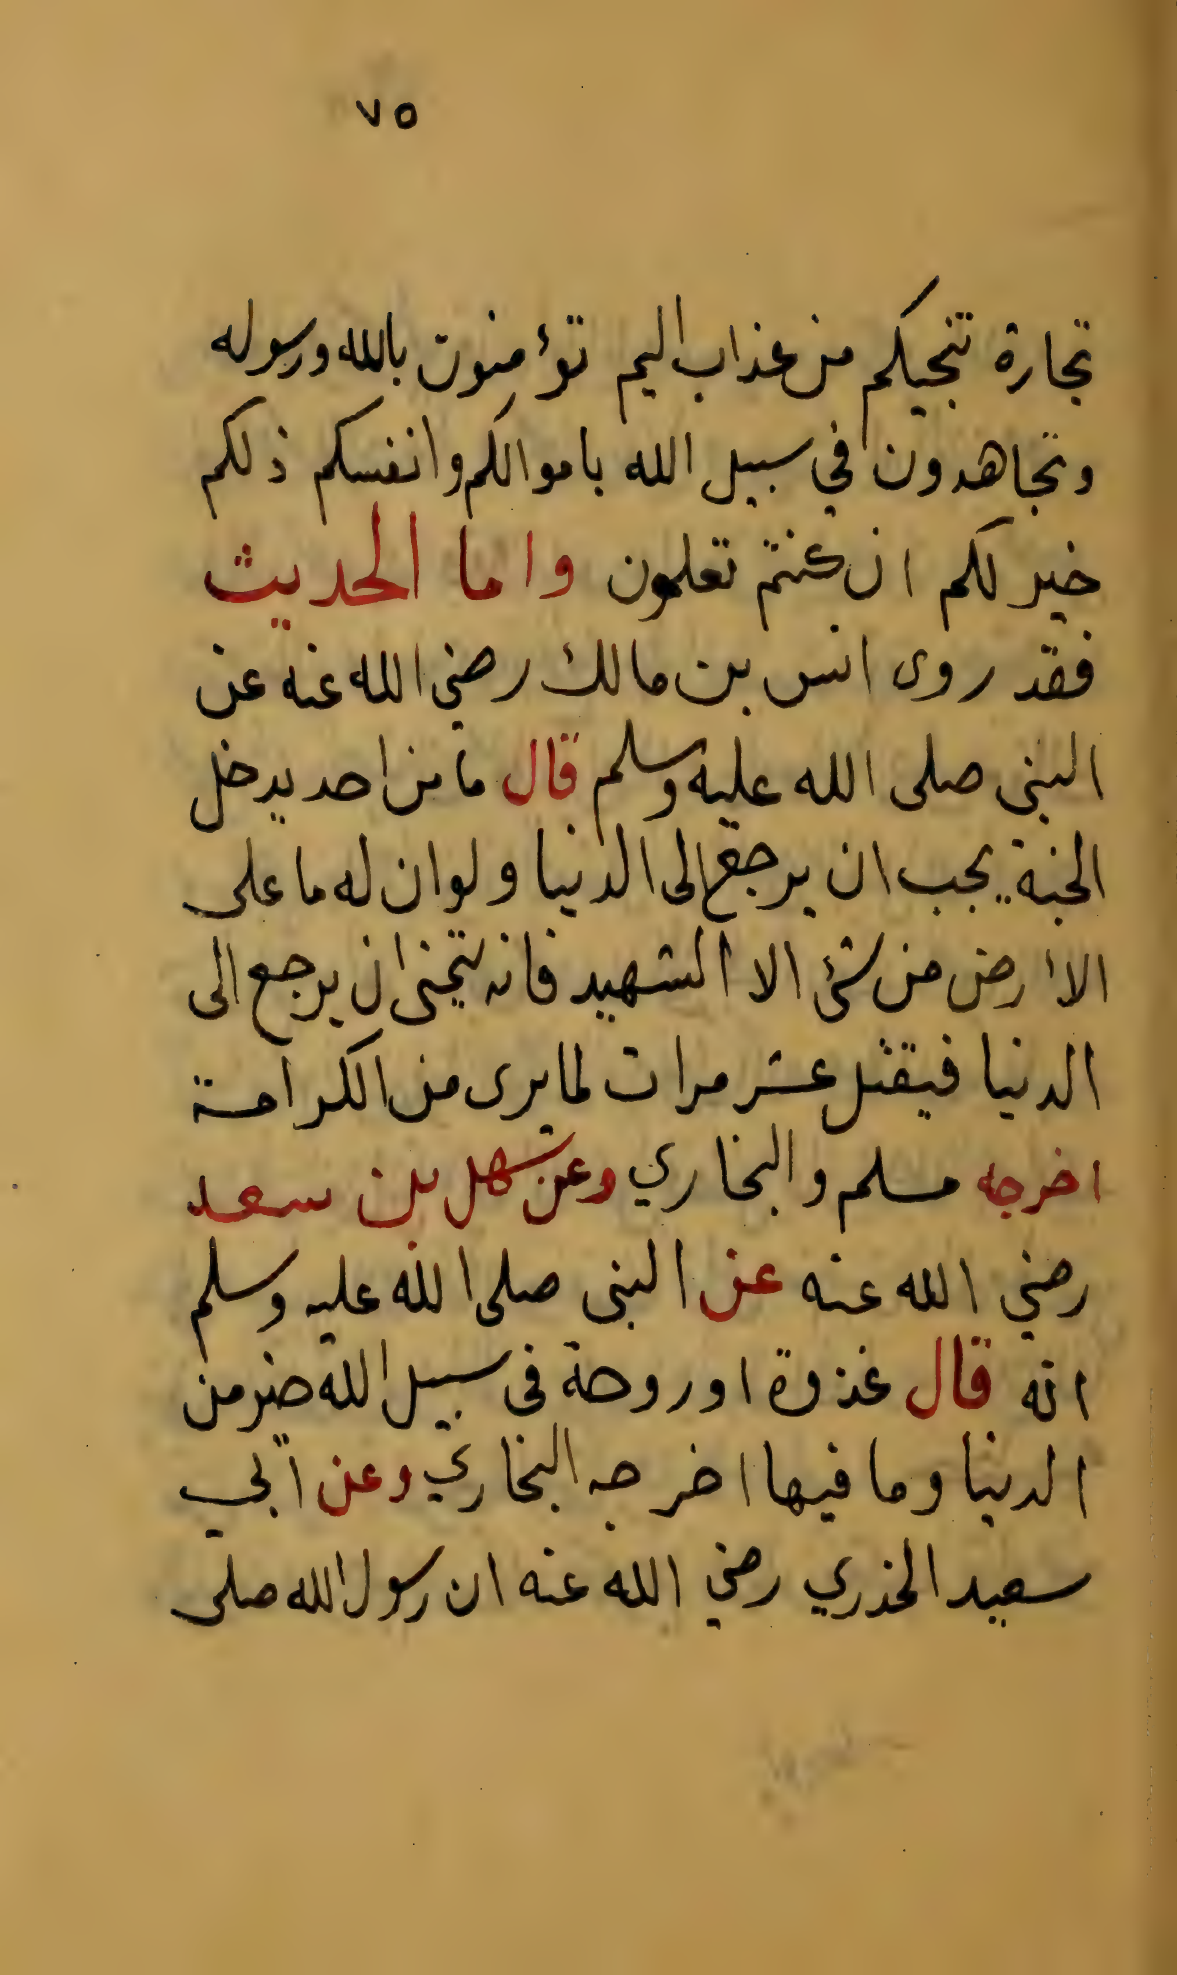 ٧٥
تجارة تنجيكم من عذاب اليم تؤمنون بالله ورسوله
وتجاهدون في سبيل الله باموالكم وانفسكم ذلكم
خير لكم ان كنتم تعلمون واما الحديث
فقد روى انس بن مالك رضي الله عنه عن
النبي صلى الله عليه وسلم قال ما من احد يدخل
الجنة يحب ان يرجع الى الدنيا ولو ان له ما على
الارض من شئ الا الشهيد فانه يتمنى ان يرجع الى
الدنيا فيقتل عشر مرات لما يرى من الكرامة
اخرجه مسلم والبخاري وعن سهل بن سعد
رضي الله عنه عن النبي صلى الله عليه وسلم
انه قال غذوة او روحة في سبيل الله خير من
الدنيا وما فيها اخرجه البخاري وعن ابي
سعيد الخذري رضي الله عنه ان رسول الله صلى